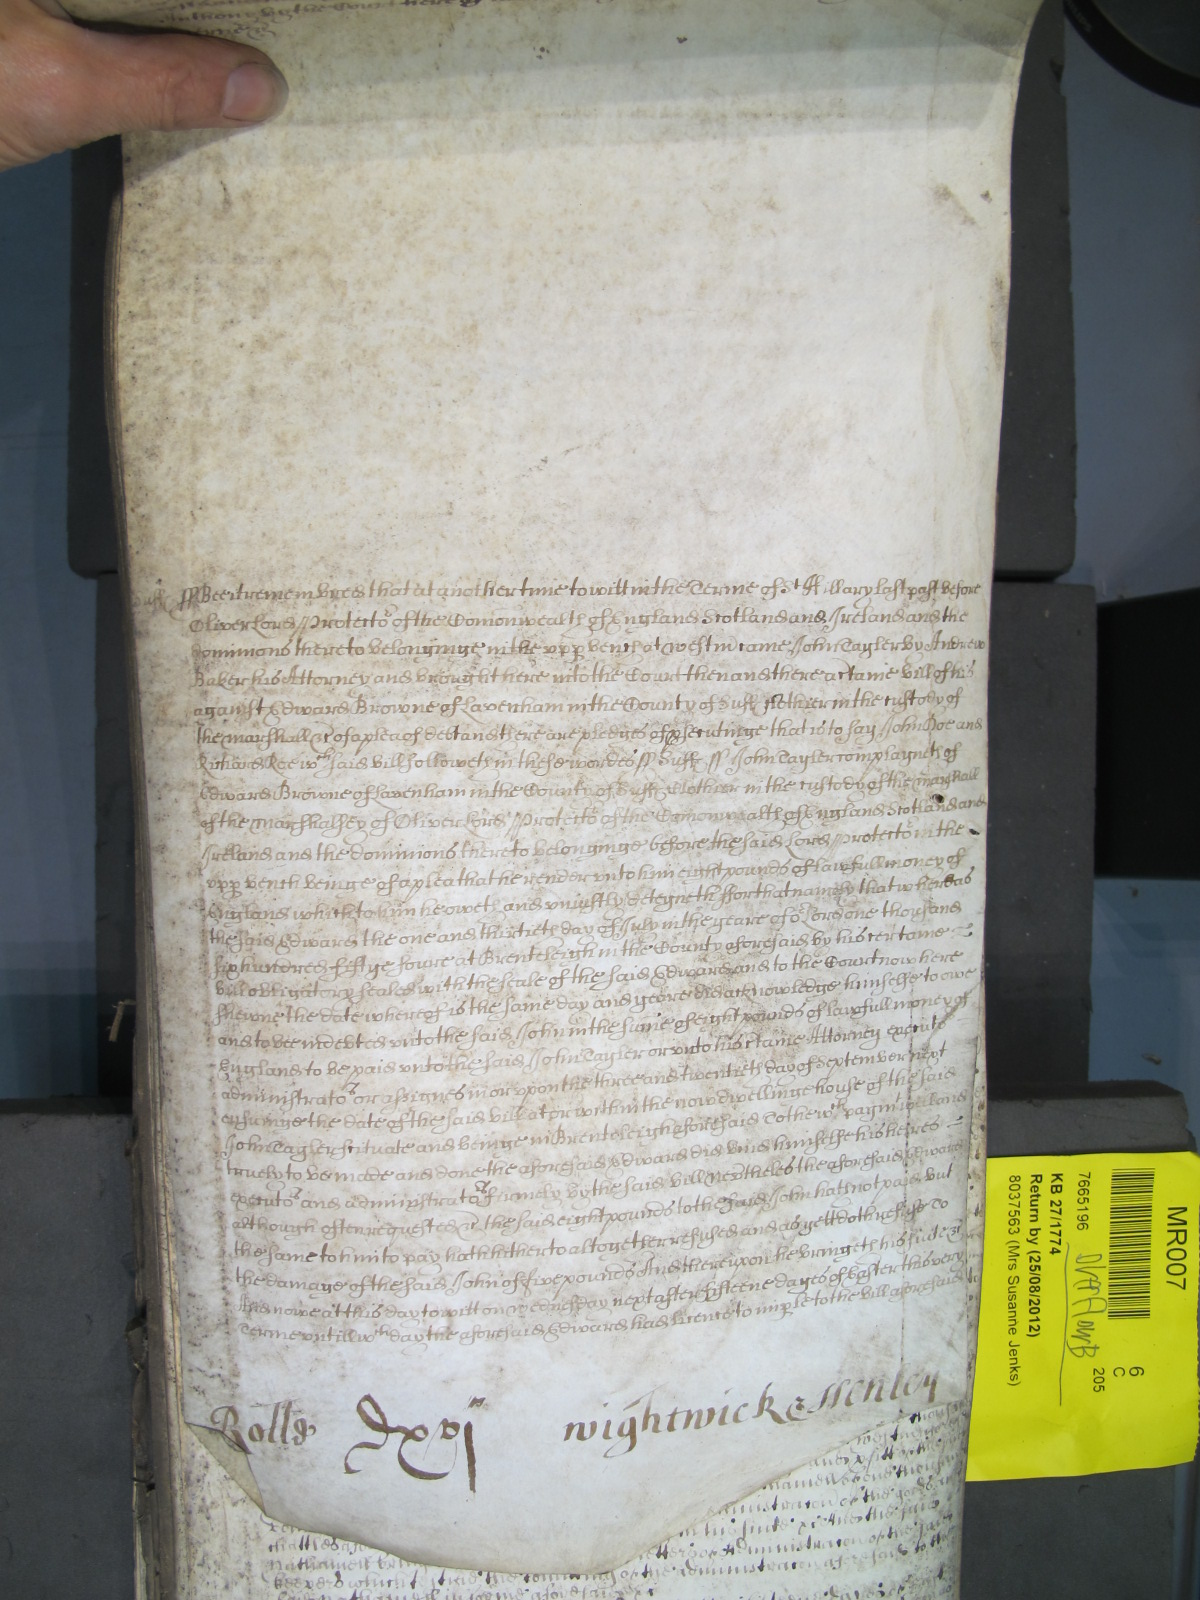 Suff
ss Bee it remembred that at another time to witt in the Terme of St Hillary last past before
Oliver Lord Protector of the Comonwealth of England Scotland and Ireland and the
dominions thereto belonginge in the upp bench at Westm came John Tayler by Andrew
Baker his Attorney and brought here into the Court then and there a ctaine bill of his
against Edward Browne of Lavenham in the County of Suff Clothier in the custody of
the marshall &c of a plea of debt and there are pledges of psecutinge that is to say John Doe and
Richard Roe wch said bill followeth in these wordes ss Suff ss John Tayler complayneth of
Edward Browne of Lavenham in the County of Suff Clothier in the custody of the marshall
of the marshalsey of Oliver Lord Protector of the Comonwealth of England Scotland and
Ireland and the dominions thereto belonginge before the said Lord Protector in the
upp bench beinge of a plea that he render unto him eight pounds of lawfull money of
England which to him he oweth and uniustly deteyneth ffor that namely that whereas
the said Edward the one and thirtieth day of July in the yeare of or Lord one thousand
six hundred fiftye foure at Brenteleigh in the County aforesaid by his certaine
bill obligatory sealed with the seale of the said Edward and to the Court now here
shewne the date whereof is the same day and yeare did acknowledge himselfe to owe
and to bee indebted unto the said John in the sume of eight pounds of lawfull money of
England to be paid unto the said John Tayler or unto his ctaine Attorney executors
administrators or assignes in or upon the three and twentieth day of September next
ensuinge the date of the said bill at or within the now dwellinge house of the said
John Tayler scituate and beinge in Brenteleigh aforesaid To the wch paymt well and
truely to be made and done the aforesaid Edward did bind himselfe his heires
executors and administrators firmely by the said bill nevtheles the aforesaid Edward
although often requested &c the said eight pounds to the said John hath not payd but
the same to him to pay hath hitherto altogether refused and as yett doth refuse To
the damage of the said John of five pounds And thereupon he bringeth his suite &c
And nowe at this day to witt on Wednesday next after fifteene dayes of Easter this very
Terme untill wch day the aforesaid Edward had licence to imple to the bill aforesaid
Rolls
Wightwick & Henley
MR007
6
C
205
7665196
KB 27/1774
Return by (25/08/2012)
8037563 (Mrs Susanne Jenks)